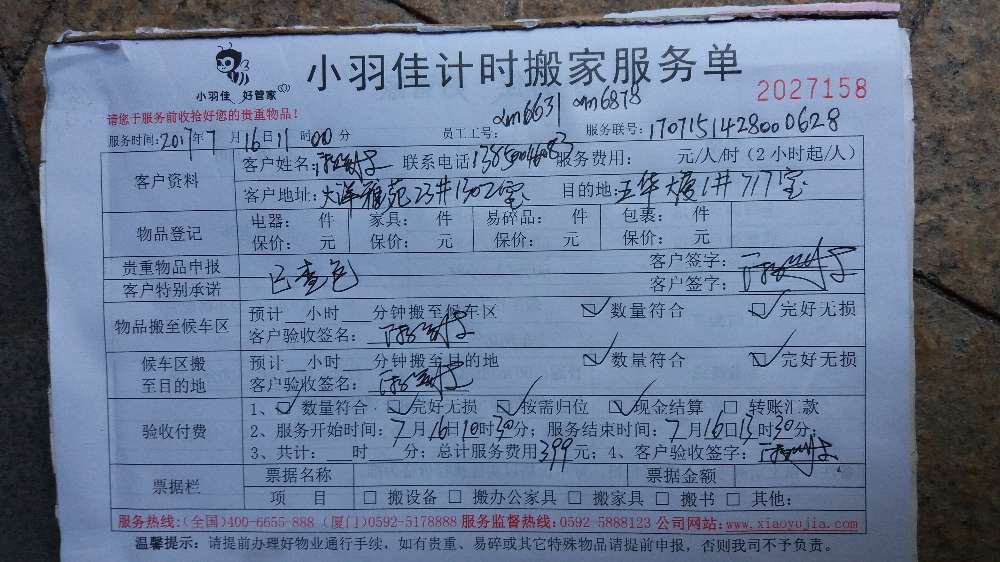 小羽佳计时搬家服务单
小羽佳 好管家
2027158
请您于服务前收拾好您的贵重物品！
xm6631 xm6878
服务时间：2017年7月16日11时00分 员工工号： 服务联号：1707151428000628
客户资料
客户姓名： 联系电话 服务费用： 元/人/时（2小时起/人）
客户地址：大洋雅苑23#1302室 目的地：五华大厦1#717室
物品登记
电器： 件 家具： 件 易碎品： 件 包裹： 件
保价： 元 保价： 元 保价： 元 保价： 元
贵重物品申报 客户签字：
已查包
客户特别承诺 客户签字：
物品搬至候车区
预计__小时__分钟搬至候车区 数量符合 完好无损
客户验收签名：
候车区搬至目的地
预计__小时__分钟搬至目的地 数量符合 完好无损
客户验收签名：
验收付费
1、数量符合 完好无损 按需归位 现金结算 转账汇款
2、服务开始时间：7月16日10时30分；服务结束时间：7月16日13时30分；
3、共计：__时__分；总计服务费用399元；4、客户验收签字：
票据栏
票据名称 票据金额
项 目 搬设备 搬办公家具 搬家具 搬书 其他：
服务热线：（全国）400-6655-888（厦门）0592-5178888 服务监督热线：0592-5888123 公司网站：www.xiaoyujia.com
温馨提示：请提前办理好物业通行手续，如有贵重、易碎或其它特殊物品请提前申报，否则我司不予负责。